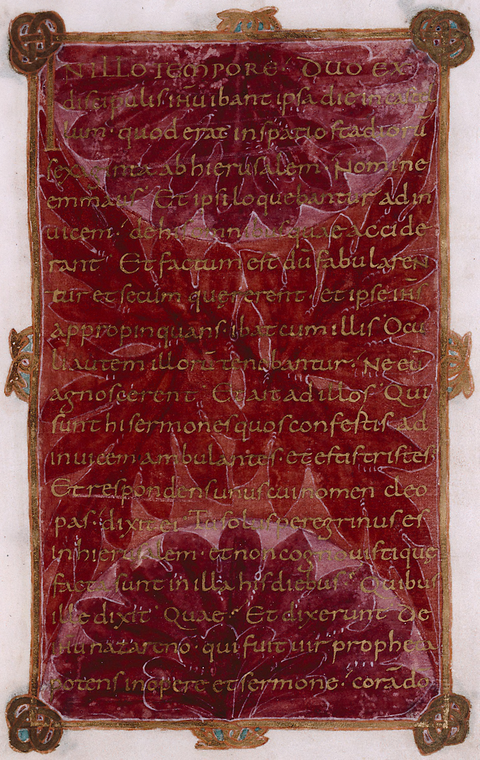 IN ILLO TEMPORE · DUO EX
discipulis ihu ibant ipsa die in castel
lum · quod erat in spatio stadiorū
sexaginta ab hierusalem · Nomine
emmaus · Et ipsi loquebantur ad in
vicem · de his omnibus quae accide
rant · Et factum est dū fabularen
tur et secum quererent · et ipse ihs
appropinquans ibat cum illis · Ocu
li autem illorū tenebantur · Ne eū
agnoscerent · Et ait ad illos · Qui
sunt hi sermones quos confestis ad
invicem ambulantes et estis tristes
Et respondens unus cui nomen cleo
pas · dixit ei · Tu solus peregrinus es
in hierusalem et non cognovisti que
facta sunt in illa his diebus · Quibus
ille dixit · Quae · Et dixerunt · De
ihu nazareno · qui fuit vir propheta
potens in opere et sermone · corā do